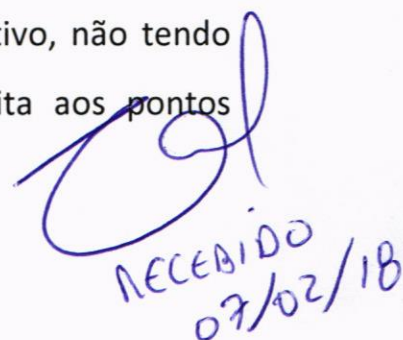 tivo, não tendo
ita aos pontos
RECEBIDO
07/02/18